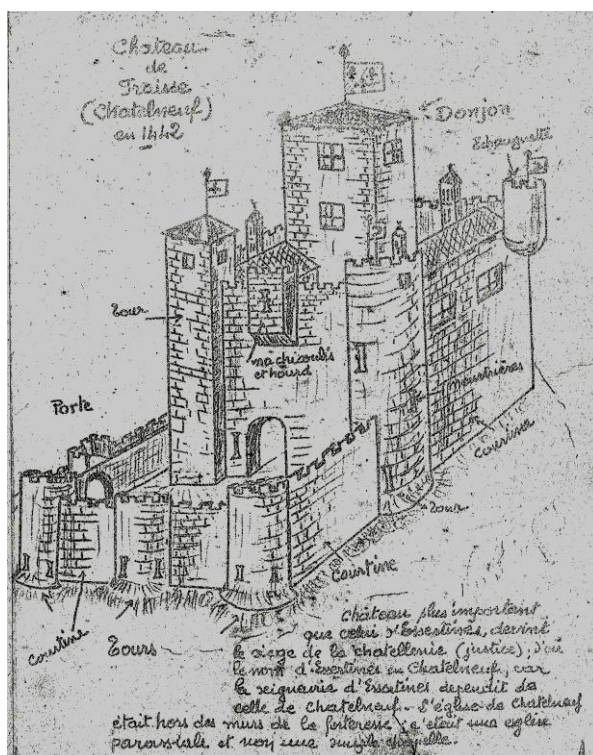 Chateau
de
Fraisse
(Chatelneuf)
en 1442
Donjon
Echauguette
Tour
machicoulis
et hourd
Porte
meurtrières
courtine
Tour
Courtine
courtine
Tours
château plus important
que celui d'Essertines, devint
le siege de la chatellenie (justice), d'où
le nom d'Essertines en Chatelneuf, car
la seigneurie d'Essertines dependit de
celle de Chatelneuf. L'église de Chatelneuf
était hors des murs de la forteresse; c'était une eglise
paroissiale et non une simple chapelle.